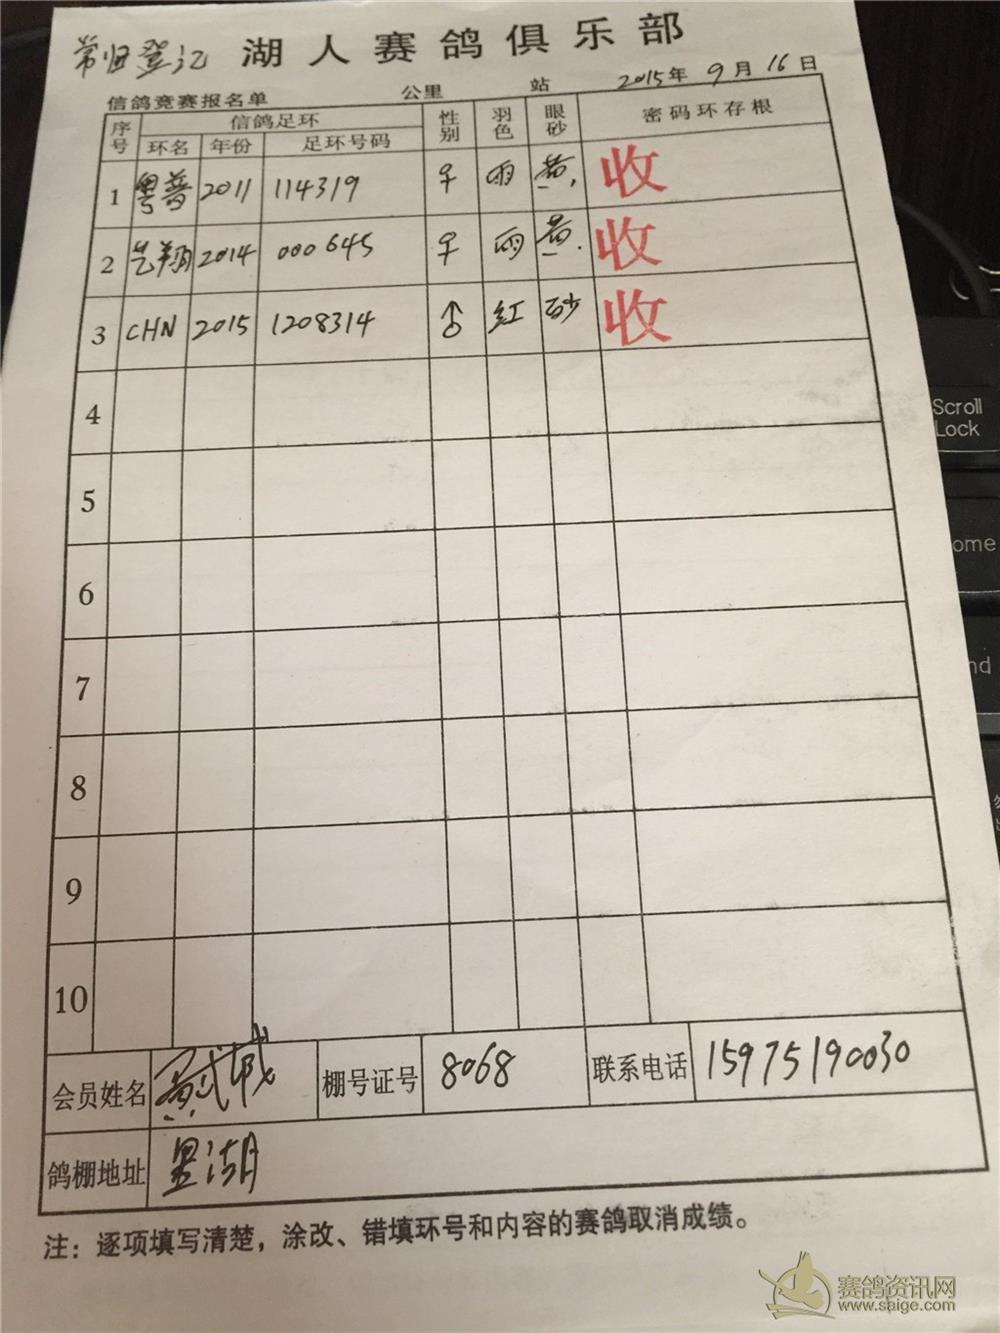 常归登记 湖人赛鸽俱乐部
信鸽竞赛报名单 公里 站 2015年9月16日
序号 信鸽足环 性别 羽色 眼砂 密码环存根
环名 年份 足环号码
1 粤普 2011 114319 ♀ 雨 黄 收
2 艺翔 2014 000645 ♀ 雨 黄 收
3 CHN 2015 1208314 ♂ 红 砂 收
4
5
6
7
8
9
10
会员姓名 棚号证号 8068 联系电话 15975190030
鸽棚地址 星湖
注：逐项填写清楚，涂改、错填环号和内容的赛鸽取消成绩。
Scroll
Lock
ome
nd
赛鸽资讯网
www.saige.com